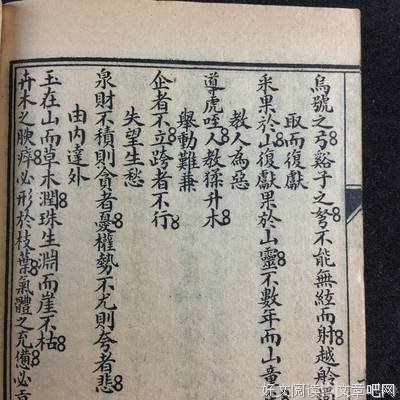 烏號之弓谿子之弩不能無絃而射越舲蜀
取而復獻
采果於山復獻果於山靈不數年而山童
教人為惡
導虎咥人教猱升木
舉動難兼
企者不立跨者不行
失望生愁
泉財不積則貪者憂權勢不尤則夸者悲
由內達外
玉在山而草木潤珠生淵而崖不枯
卉木之腴瘠必形於枝葉氣體之充憊必
好文阅读 文章吧网